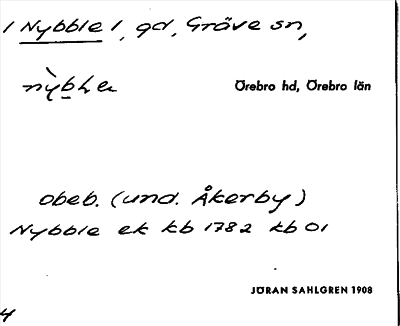 1 Nybble 1, gd, Gräve sn,
Örebro hd, Örebro län
obeb. (und. Åkerby)
Nybble ek kb 1782 kb 01
JÖRAN SAHLGREN 1908
4